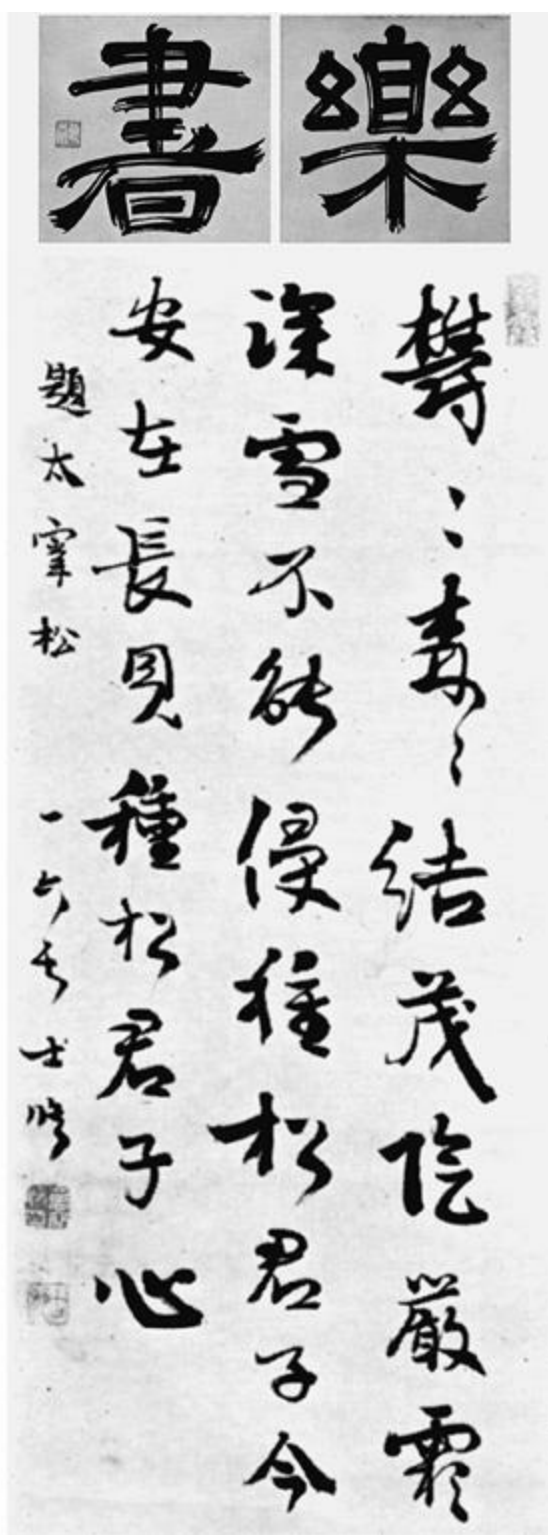 樂書
欝〻青〻結茂陰厳霜
深雪不能侵種松君子今
安在長見種松君子心
題太宰松 一六居士脩